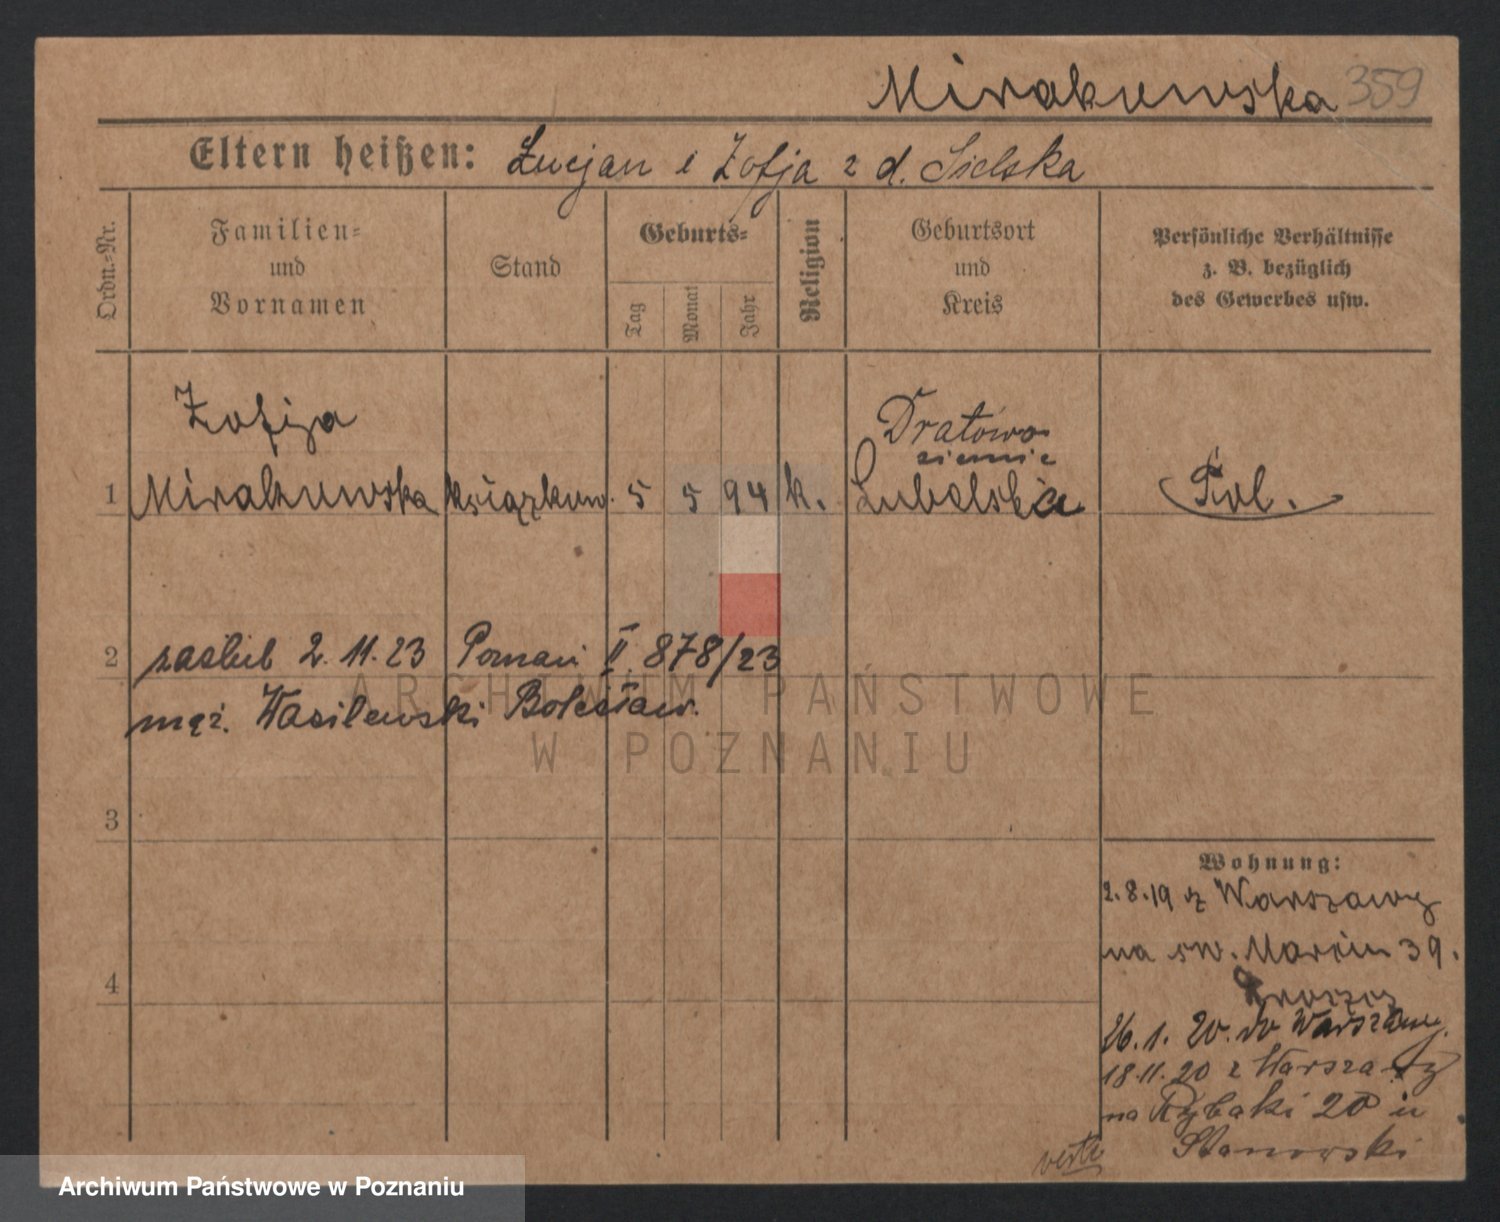 Mirakuwska 359
Eltern heißen: Lucjan i Zofja z d. Sielska
Ordn.-Nr.
Familien-
und
Vornamen
Stand
Geburts-
Tag
Monat
Jahr
Religion
Geburtsort
und
Kreis
Persönliche Verhältnisse
z. B. bezüglich
des Gewerbes usw.
Zofija
Dratówo
ziemia
1 Mirakuwska książkow. 5 5 94 k. Lubelska Pol.
2 zaślub 2.11.23 Poznań II 878/23
mąż. Wasilewski Bolesław.
ARCHIWUM PAŃSTWOWE
W POZNANIU
3
Wohnung:
2.8.19 z Warszawy
na św. Marcin 39.
4
26.1.20. do Warszawy.
18.11.20 z Warszawy
na Rybaki 20 u
Stanowski
verte
Archiwum Państwowe w Poznaniu